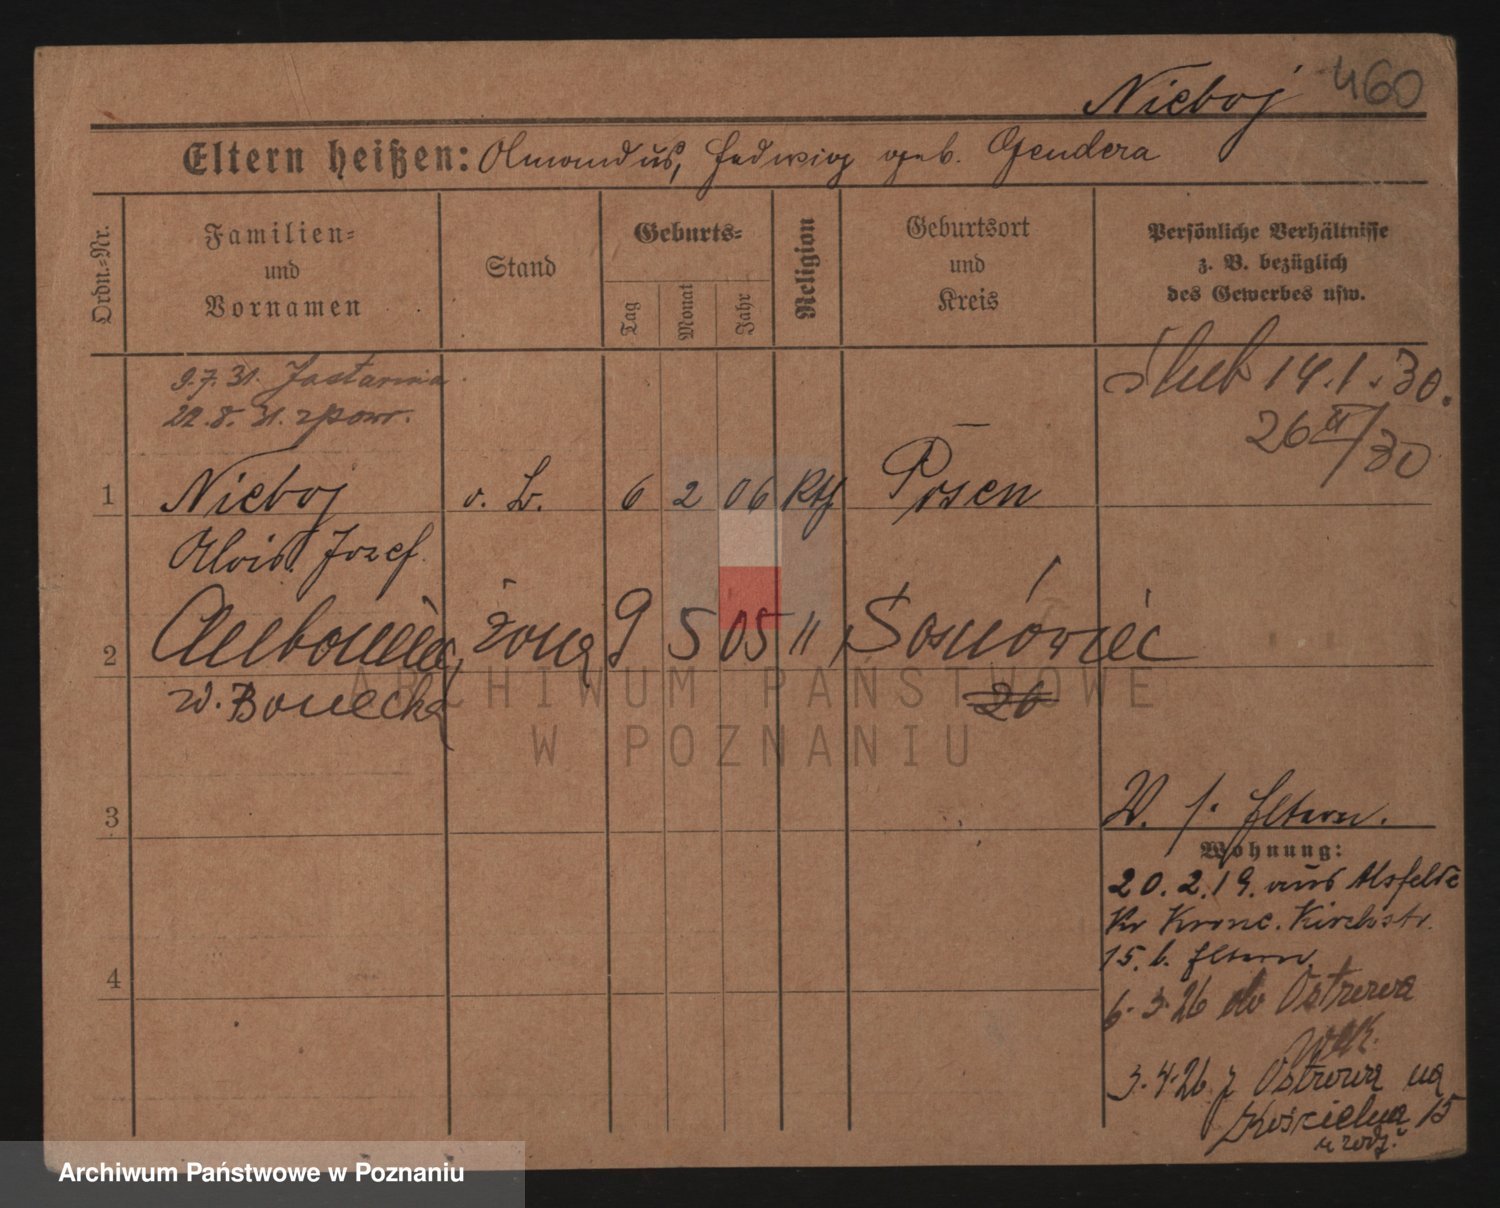 Nieboj 460
Eltern heißen: Hedwig geb. Gendera
Ordn.=Nr.
Familien=
und
Vornamen
Stand
Geburts=
Tag
Monat
Jahr
Religion
Geburtsort
und
Kreis
Persönliche Verhältnisse
z. B. bezüglich
des Gewerbes usw.
9.7.31. Jastarnia
22.8.31. z pow.
ślub 14.1.30.
26 /30
1 Nieboj 6 2 06 Kth Posen
Alois Jozef
2 żona 9 5 05 " Sosnowiec
w. Bonecka
20
3
W. s. Eltern.
Wohnung:
20.2.19. aus Alsfelde
Kr Krone. Kirchstr.
15. b. Eltern.
4
6.3.26 do Ostrowa
3.4.26 z Ostrowa na
Kościelna 15
u rodz.
ARCHIWUM PAŃSTWOWE
W POZNANIU
Archiwum Państwowe w Poznaniu